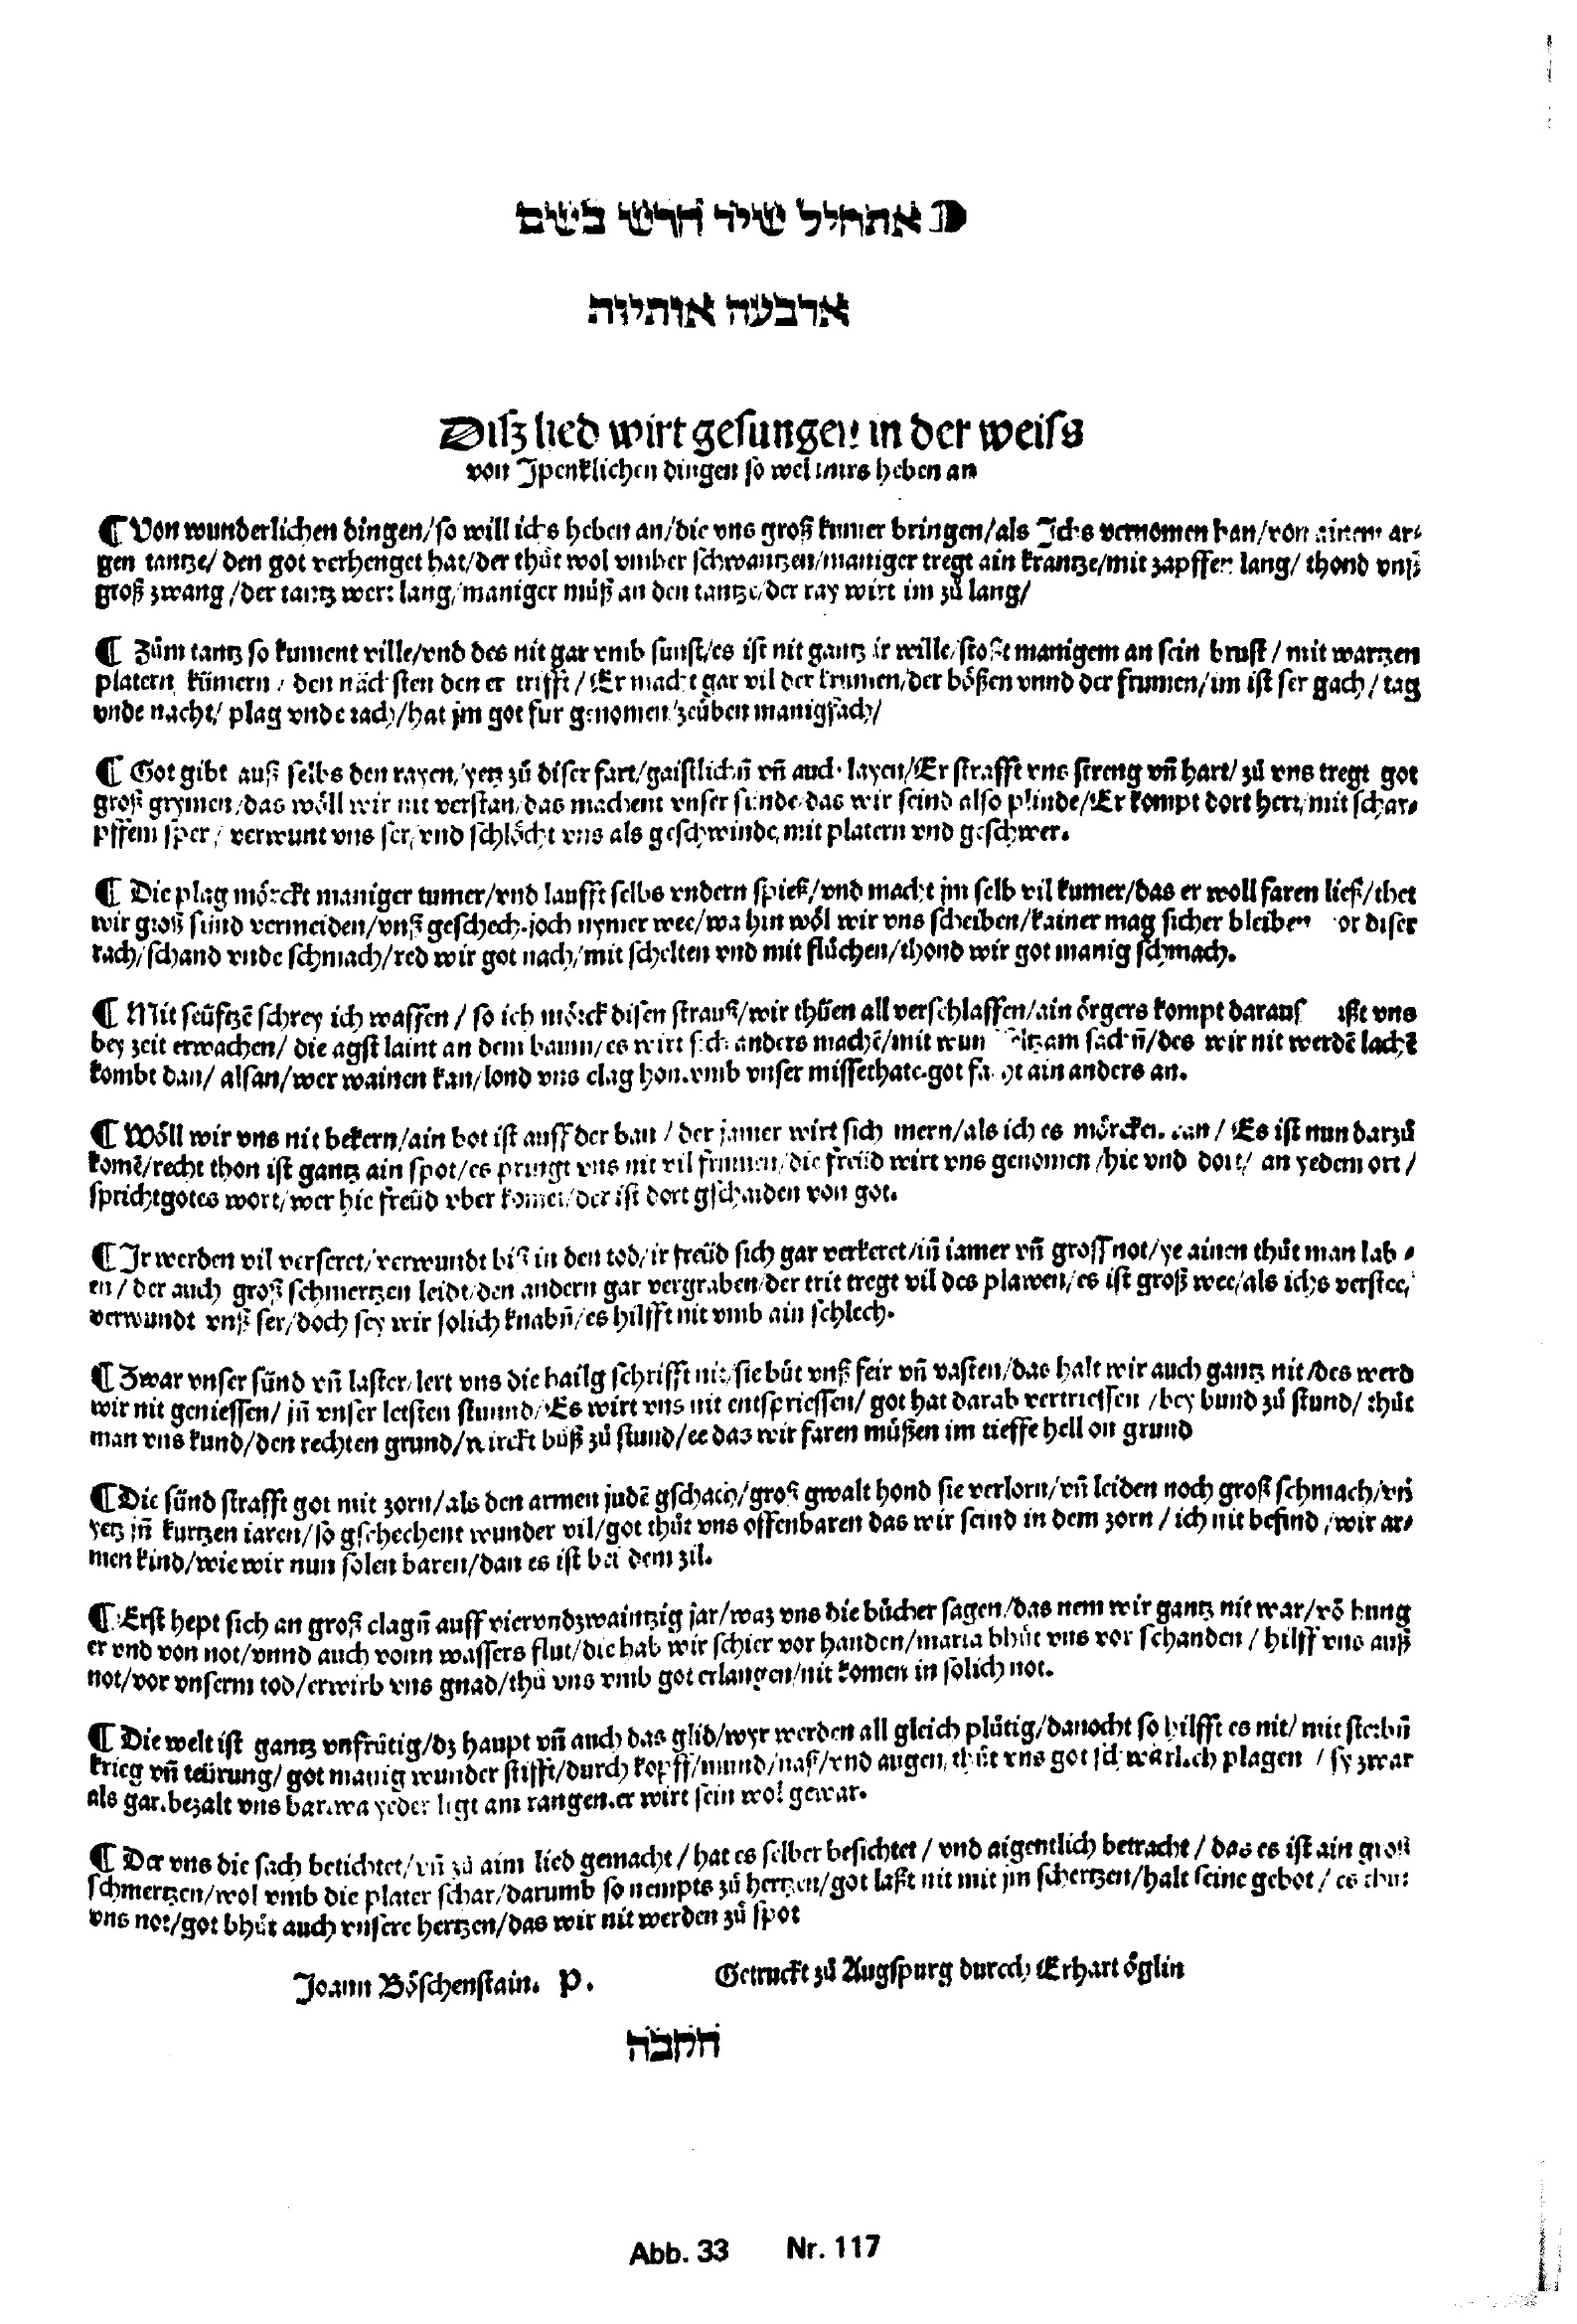 אתחיל שיר חדש בשם
ארבעה אותיות
Disz lied wirt gesungen in der weiss
von Jpenklichen dingen so wel wirs heben an
¶ Von wunderlichen dingen/so will ichs heben an/die vns groß kumer bringen/als Jchs vernomen han/von ainem ar⸗
gen tantze/ den got verhenget hat/der thůt wol vmber schwantzen/maniger tregt ain krantze/mit zapffen lang/ thond vnß
groß zwang/der tantz wert lang/maniger můß an den tantze/der ray wirt im zů lang/
¶ Zům tantz so kument ville/vnd des nit gar vmb sunst/es ist nit gantz ir wille/stoßt manigem an sein brust/ mit wartzen
platern kümern/ den nächsten den er trifft/ Er macht gar vil der krumen/der bößen vnnd der frumen/im ist ser gach/ tag
vnde nacht/ plag vnde rach/hat jm got fur genomen/zeüben manigfach/
¶ Got gibt auß selbs den rayen/yetz zů diser fart/gaistlichñ vñ auch layen/Er strafft vns streng vñ hart/ zů vns tregt got
groß grymen/das wöll wir nit verstan/das machent vnser sunde/das wir seind also plinde/Er kompt dort her/mit schar⸗
pffem sper/ verwunt vns ser/vnd schlöcht vns als geschwinde/mit platern vnd geschwer.
¶ Die plag mörckt maniger tumer/vnd laufft selbs vndern spieß/vnd macht jm selb vil kumer/das er woll faren ließ/thet
wir groß sünd vermeiden/vnß geschech joch nymer wee/wa hin wöl wir vns scheiben/kainer mag sicher bleiben or diser
rach/schand vnde schmach/red wir got nach/mit schelten vnd mit flůchen/thond wir got manig schmach.
¶ Mit seüftzē schrey ich waffen/ so ich mörck disen strauß/wir thůen all verschlaffen/ain örgers kompt daraus ißt vns
bey zeit erwachen/ die agst laint an dem baum/es wirt sich anders machē/mit wun ltzam sachñ/des wir nit werdē lachē
kombt dan/ alsan/wer wainen kan/lond vns clag hon.vmb vnser missethate.got fa gt ain anders an.
¶ Wöll wir vns nit bekern/ain bot ist auff der ban/ der jamer wirt sich mern/als ich es mörcken kan/ Es ist nun darzů
komē/recht thon ist gantz ain spot/es pringt vns nit vil frumen/die freüd wirt vns genomen/hie vnd dort/ an yedem ort/
sprichtgotes wort/wer hie freüd vber komet/der ist dort gschaiden von got.
¶ Jr werden vil verseret/verwundt biß in den tod/ir freüd sich gar verkeret/iñ iamer vñ gross not/ye ainen thůt man lab⸗
en/ der auch groß schmertzen leidt/den andern gar vergraben/der trit tregt vil des plawen/es ist groß wee/als ichs verstee/
verwundt vnß ser/doch sey wir solich knabñ/es hilfft nit vmb ain schlech.
¶ Zwar vnser sünd vñ laster/lert vns die hailg schrifft nit/sie büt vnß feir vñ vasten/das halt wir auch gantz nit/des werd
wir nit geniessen/ jñ vnser letsten stunnd/Es wirt vns nit entspriessen/ got hat darab vertriessen/bey bund zů stund/ thůt
man vns kund/den rechten grund/wirckt bůß zů stund/ee das wir faren müßen im tieffe hell on grund
¶ Die sünd strafft got mit zorn/als den armen judē gschach/groß gwalt hond sie verlorn/vñ leiden noch groß schmach/vñ
yetz jñ kurtzen iaren/so gschechent wunder vil/got thůt vns offenbaren das wir seind in dem zorn/ ich nit befind/wir ar⸗
men kind/wie wir nun solen baren/dan es ist bei dem zil.
¶ Erst hept sich an groß clagñ auff viervndzwaintzig jar/waz vns die bücher sagen/das nem wir gantz nit war/vō hung
er vnd von not/vnnd auch vonn wassers flut/die hab wir schier vor handen/maria bhüt vns vor schanden/ hilff vns auß
not/vor vnserm tod/erwirb vns gnad/thů vns vmb got erlangen/nit komen in solich not.
¶ Die welt ist gantz vnfrütig/dz haupt vñ auch das glid/wyr werden all gleich plütig/danocht so hilfft es nit/ mit sterbñ
krieg vñ teürung/ got manig wunder stifft/durch kopff/mund/naß/vnd augen/thůt vns got schwärlich plagen/ sy zwar
als gar.bezalt vns bar.wa yeder ligt am rangen.er wirt sein wol gewar.
¶ Der vns die sach betichtet/vñ zů aim lied gemacht/ hat es selber besichtet/ vnd aigentlich betracht/ das es ist ain groß
schmertzen/wol vmb die plater schar/darumb so nempts zů hertzen/got laßt nit mit jm schertzen/halt seine gebot/ es thut
vns not/got bhüt auch vnsere hertzen/das wir nit werden zů spot
Joann Böschenstain. P. Getruckt zů Augspurg durch Erhart öglin
הקבה
Abb. 33 Nr. 117